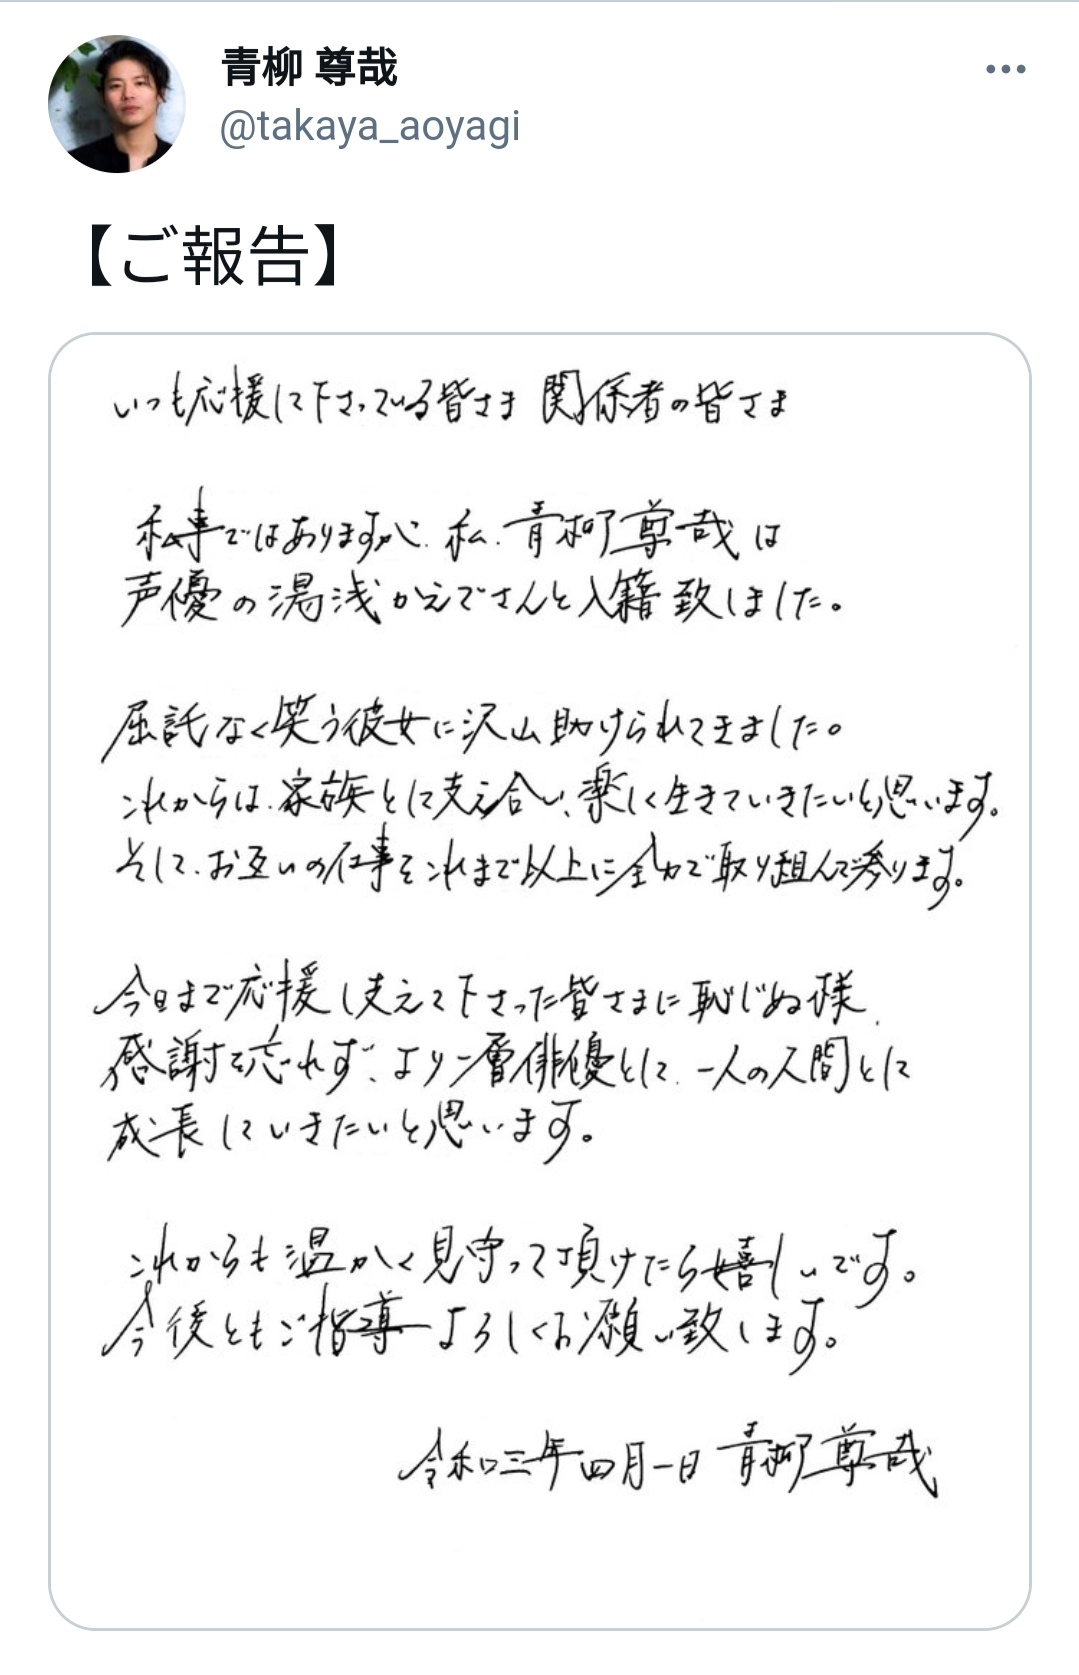 青柳 尊哉
@takaya_aoyagi
【ご報告】
いつも応援して下さっている皆さま 関係者の皆さま
私事ではありますが、私、青柳尊哉は
声優の湯浅かえでさんと入籍致しました。
屈託なく笑う彼女に沢山助けられてきました。
これからは、家族として支え合い、楽しく生きていきたいと思います。
そして、お互いの仕事をこれまで以上に全力で取り組んで参ります。
今日まで応援し支えて下さった皆さまに恥じぬ様、
感謝を忘れず、より一層俳優として、一人の人間として
成長していきたいと思います。
これからも温かく見守って頂けたら嬉しいです。
今後ともご指導よろしくお願い致します。
令和三年四月一日 青柳尊哉